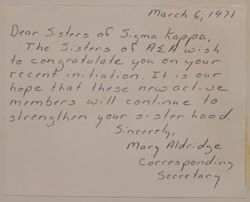 March 6, 1971
Dear Sisters of Sigma Kappa,
The Sisters of ΑΣΑ wish
to congratulate you on your
recent initiation. It is our
hope that these new active
members will continue to
strengthen your sisterhood.
Sincerely,
Mary Aldridge
Corresponding
Secretary